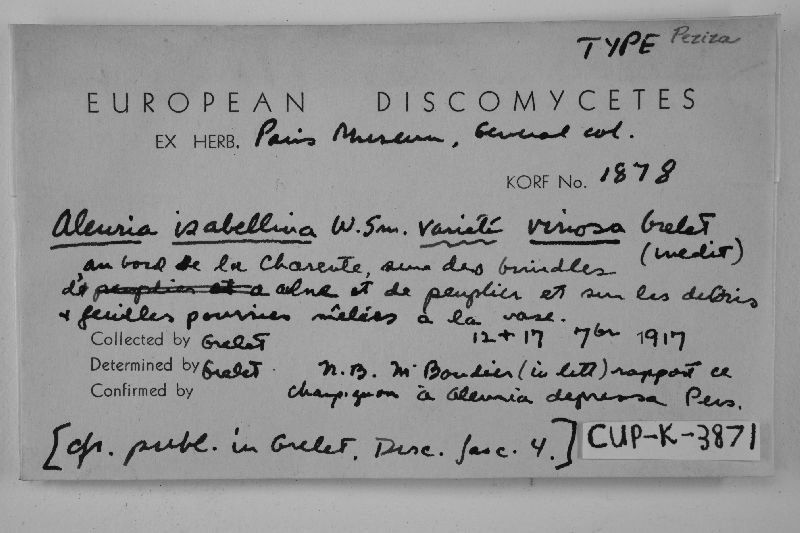 TYPE Peziza
EUROPEAN DISCOMYCETES
EX HERB. Paris Museum, General col.
KORF No. 1878
Aleuria isabellina W. Sm. variété vinosa Grelet
(inedit)
au bord de la Charente, sur des brindles
d'aulne et de peuplier et sur les debris
& feuilles pourries mêlées à la vase.
Collected by Grelet 12 + 17 7bre 1917
Determined by Grelet. N.B. Mr Boudier (in litt) rapport ce
Confirmed by champignon à Aleuria depressa Pers.
[cfr. publ. in Grelet, Disc. fasc. 4.]
CUP-K-3871